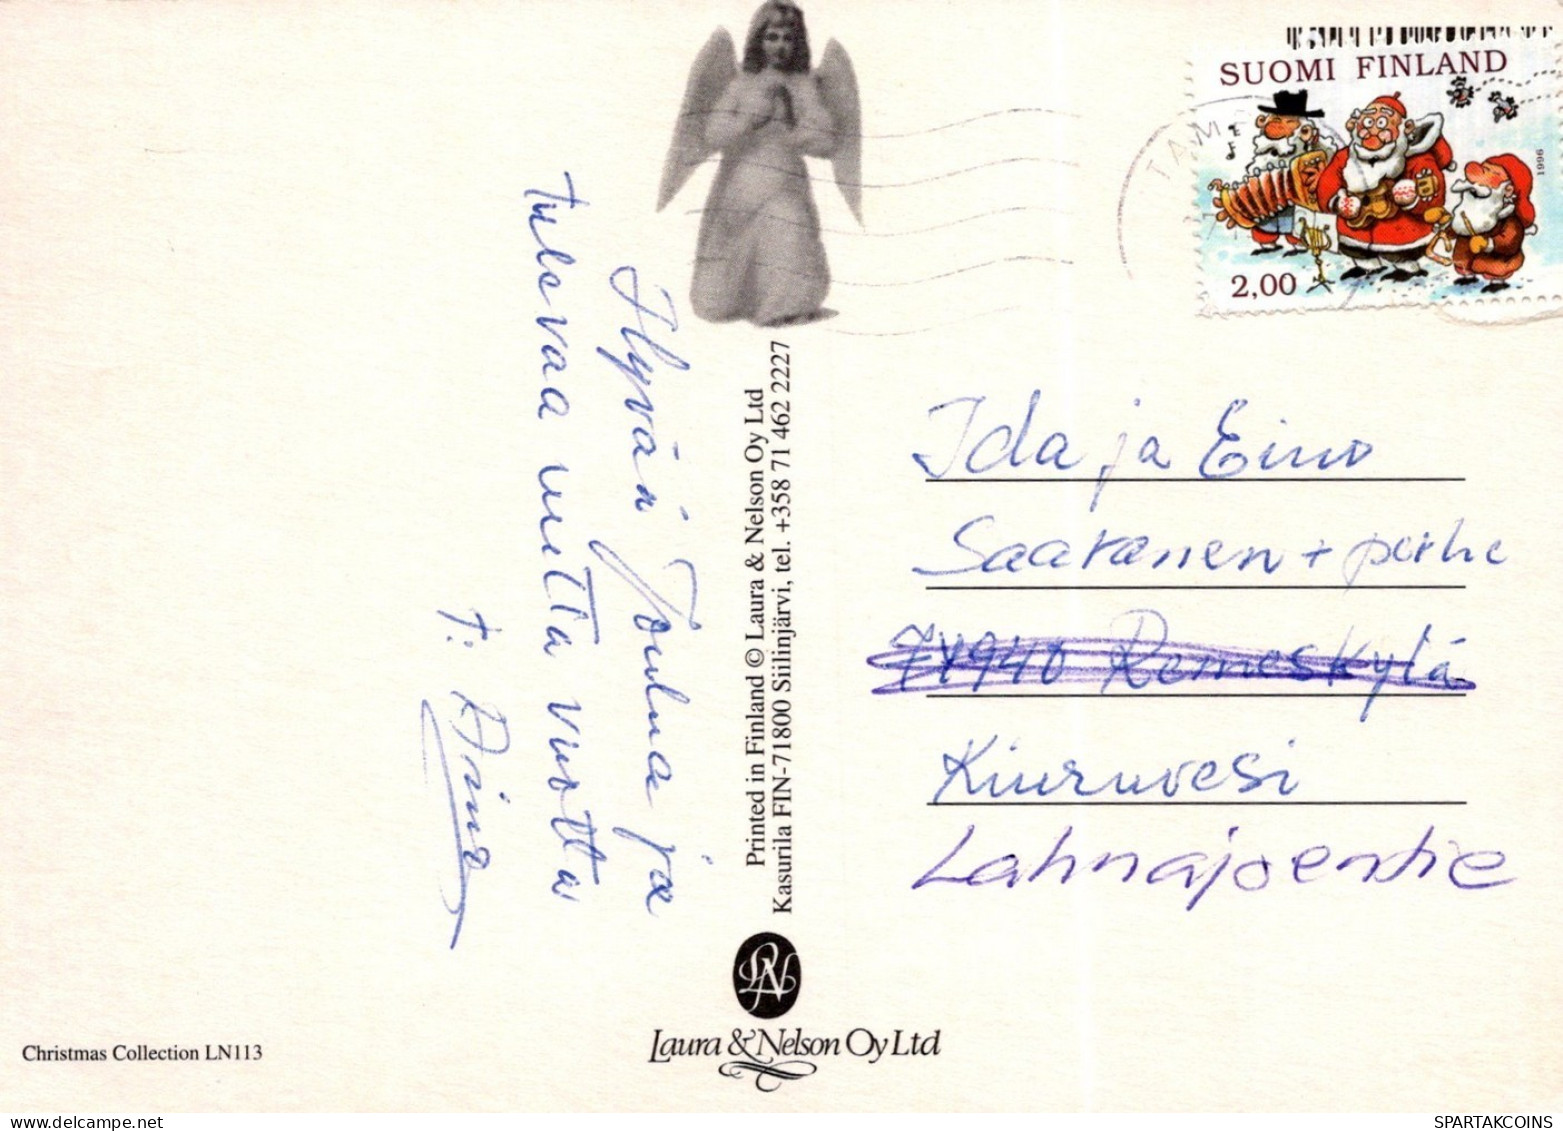 SUOMI FINLAND
1996
2,00
TAM
Hyvää Joulua ja
tulevaa uutta vuotta
t: Aino
Printed in Finland © Laura & Nelson Oy Ltd
Kasurila FIN-71800 Siilinjärvi, tel. +358 71 462 2227
Ida ja Eino
Saaranen + perhe
74940 Remeskylä
Kiuruvesi
Lahnajoentie
LN
Laura & Nelson Oy Ltd
Christmas Collection LN113
SPARTAKCOINS